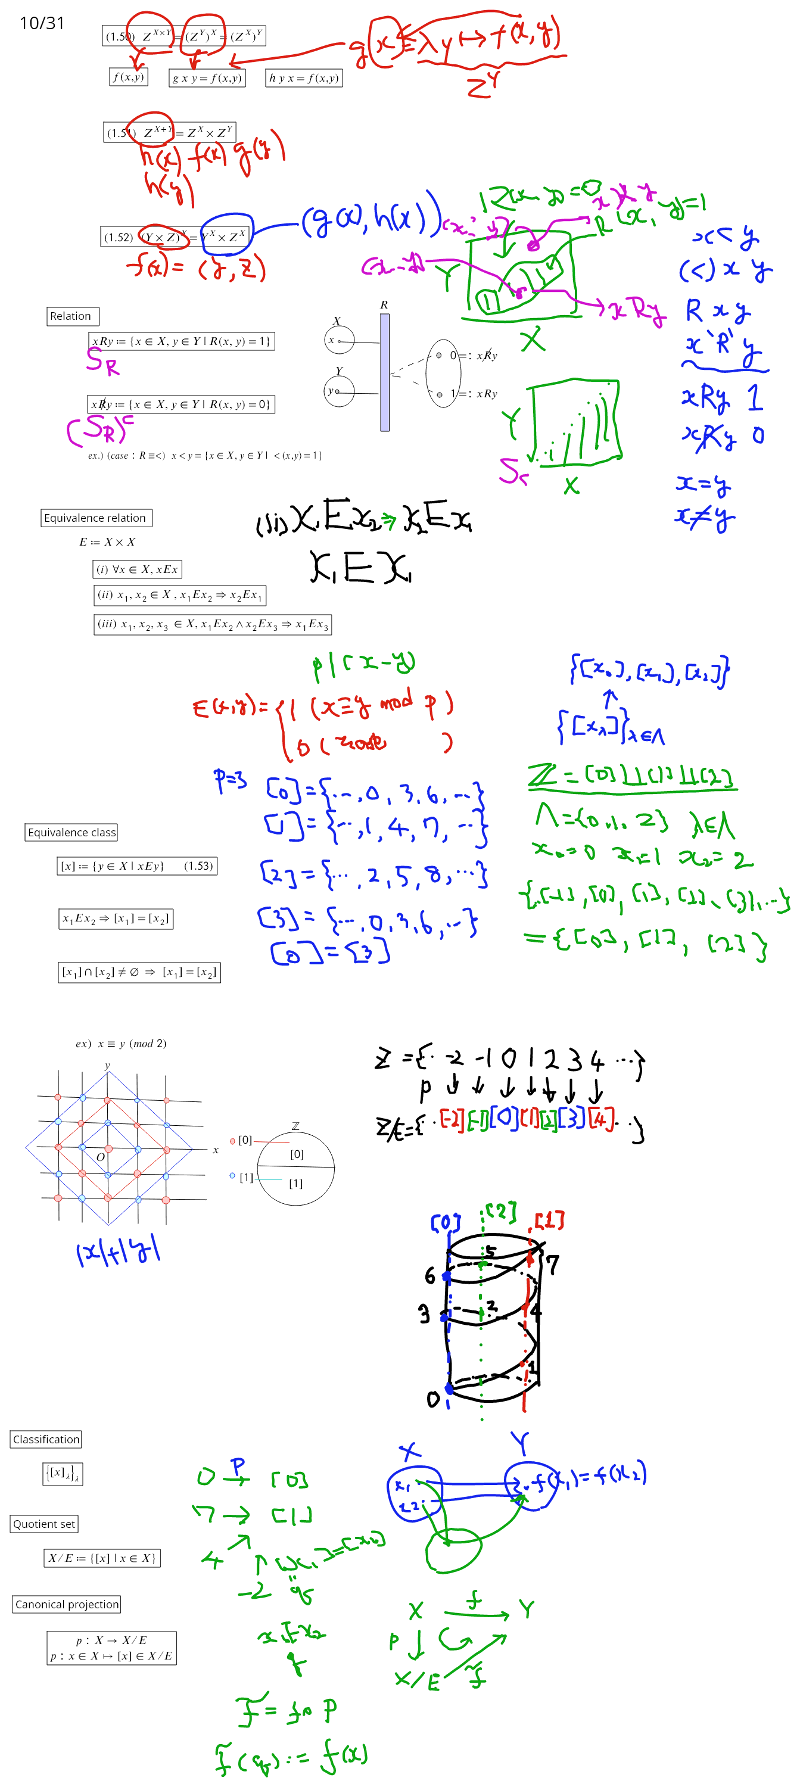 10/31
(1.50) Z^{X×Y} = (Z^Y)^X = (Z^X)^Y
f(x,y)
g x y = f(x,y)
h y x = f(x,y)
g(x) = λy ↦ f(x,y)
Z^Y
(1.51) Z^{X+Y} = Z^X × Z^Y
h(x) f(x) g(y)
h(y)
(1.52) (Y × Z)^X = Y^X × Z^X
(g(x), h(x))
f(x) = (y, z)
R(x, y) = 0
x R̸ y
R(x, y) = 1
(x, y)
(x, y)
Y
x R y
X
x < y
(<) x y
R x y
x `R` y
xRy 1
xR̸y 0
x = y
x ≠ y
Relation
xRy ≔ {x ∈ X, y ∈ Y | R(x, y) = 1}
S_R
xR̸y ≔ {x ∈ X, y ∈ Y | R(x, y) = 0}
(S_R)^c
ex.) (case : R ≡<) x < y = {x ∈ X, y ∈ Y | < (x,y) = 1}
R
X
x
Y
y
0 =: xR̸y
1 =: xRy
Y
S<
X
Equivalence relation
E ≔ X × X
(i) ∀x ∈ X, xEx
(ii) x₁, x₂ ∈ X , x₁Ex₂ ⇒ x₂Ex₁
(iii) x₁, x₂, x₃ ∈ X, x₁Ex₂ ∧ x₂Ex₃ ⇒ x₁Ex₃
(ii) x₁Ex₂ ⇒ x₂Ex₁
x₁Ex₁
p | (x-y)
E(x,y) = { 1 (x ≡ y mod p)
0 ( )
{[x₀], [x₁], [x₂]}
↑
{[x_λ]}_{λ∈Λ}
p=3
[0] = {…, 0, 3, 6, …}
[1] = {…, 1, 4, 7, …}
[2] = {…, 2, 5, 8, …}
[3] = {…, 0, 3, 6, …}
[0] = [3]
Z = [0]⊔[1]⊔[2]
Λ = {0, 1, 2} λ∈Λ
x₀=0 x₁=1 x₂=2
{…[-1], [0], [1], [2], [3], …}
= {[0], [1], [2]}
Equivalence class
[x] ≔ {y ∈ X | xEy} (1.53)
x₁Ex₂ ⇒ [x₁] = [x₂]
[x₁] ∩ [x₂] ≠ ∅ ⇒ [x₁] = [x₂]
ex) x ≡ y (mod 2)
y
x
O
[0]
[1]
ℤ
[0]
[1]
|x|+|y|
Z = {… -2 -1 0 1 2 3 4 …}
p ↓ ↓ ↓ ↓ ↓ ↓ ↓
Z/E = {… [-2] [-1] [0] [1] [2] [3] [4] …}
[0] [2] [1]
5
6
7
3
2
4
1
0
Classification
{[x]_λ}_λ
Quotient set
X/E ≔ {[x] | x ∈ X}
Canonical projection
p : X → X/E
p : x ∈ X ↦ [x] ∈ X/E
0 →p [0]
7 → [1]
4
-2
[x₁] = [x₂]
q
x₁Ex₂
q
f̃ = f∘p
f̃(q) := f(x)
X
Y
x₁
x₂
f(x₁) = f(x₂)
X
f
Y
p
X/E
f̃